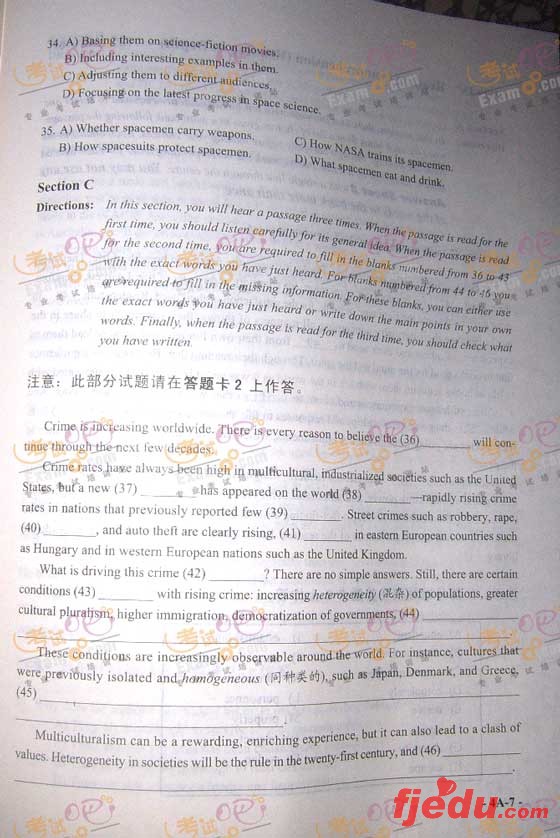 34. A) Basing them on science-fiction movies.
B) Including interesting examples in them.
C) Adjusting them to different audiences.
D) Focusing on the latest progress in space science.
35. A) Whether spacemen carry weapons.
C) How NASA trains its spacemen.
B) How spacesuits protect spacemen.
D) What spacemen eat and drink.
Section C
Directions: In this section, you will hear a passage three times. When the passage is read for the
first time, you should listen carefully for its general idea. When the passage is read
for the second time, you are required to fill in the blanks numbered from 36 to 43
with the exact words you have just heard. For blanks numbered from 44 to 46 you
are required to fill in the missing information. For these blanks, you can either use
the exact words you have just heard or write down the main points in your own
words. Finally, when the passage is read for the third time, you should check what
you have written.
注意：此部分试题请在答题卡 2 上作答。
Crime is increasing worldwide. There is every reason to believe the (36)________ will con-
tinue through the next few decades.
Crime rates have always been high in multicultural, industrialized societies such as the United
States, but a new (37) ________ has appeared on the world (38) ________—rapidly rising crime
rates in nations that previously reported few (39) ________. Street crimes such as robbery, rape,
(40)________, and auto theft are clearly rising, (41) ________ in eastern European countries such
as Hungary and in western European nations such as the United Kingdom.
What is driving this crime (42) ________? There are no simple answers. Still, there are certain
conditions (43) ________ with rising crime: increasing heterogeneity (混杂) of populations, greater
cultural pluralism, higher immigration, democratization of governments, (44)________
________.
These conditions are increasingly observable around the world. For instance, cultures that
were previously isolated and homogeneous (同种类的), such as Japan, Denmark, and Greece,
(45) ________
________.
Multiculturalism can be a rewarding, enriching experience, but it can also lead to a clash of
values. Heterogeneity in societies will be the rule in the twenty-first century, and (46) ________
________.
- 4A-7 -
fjedu.com